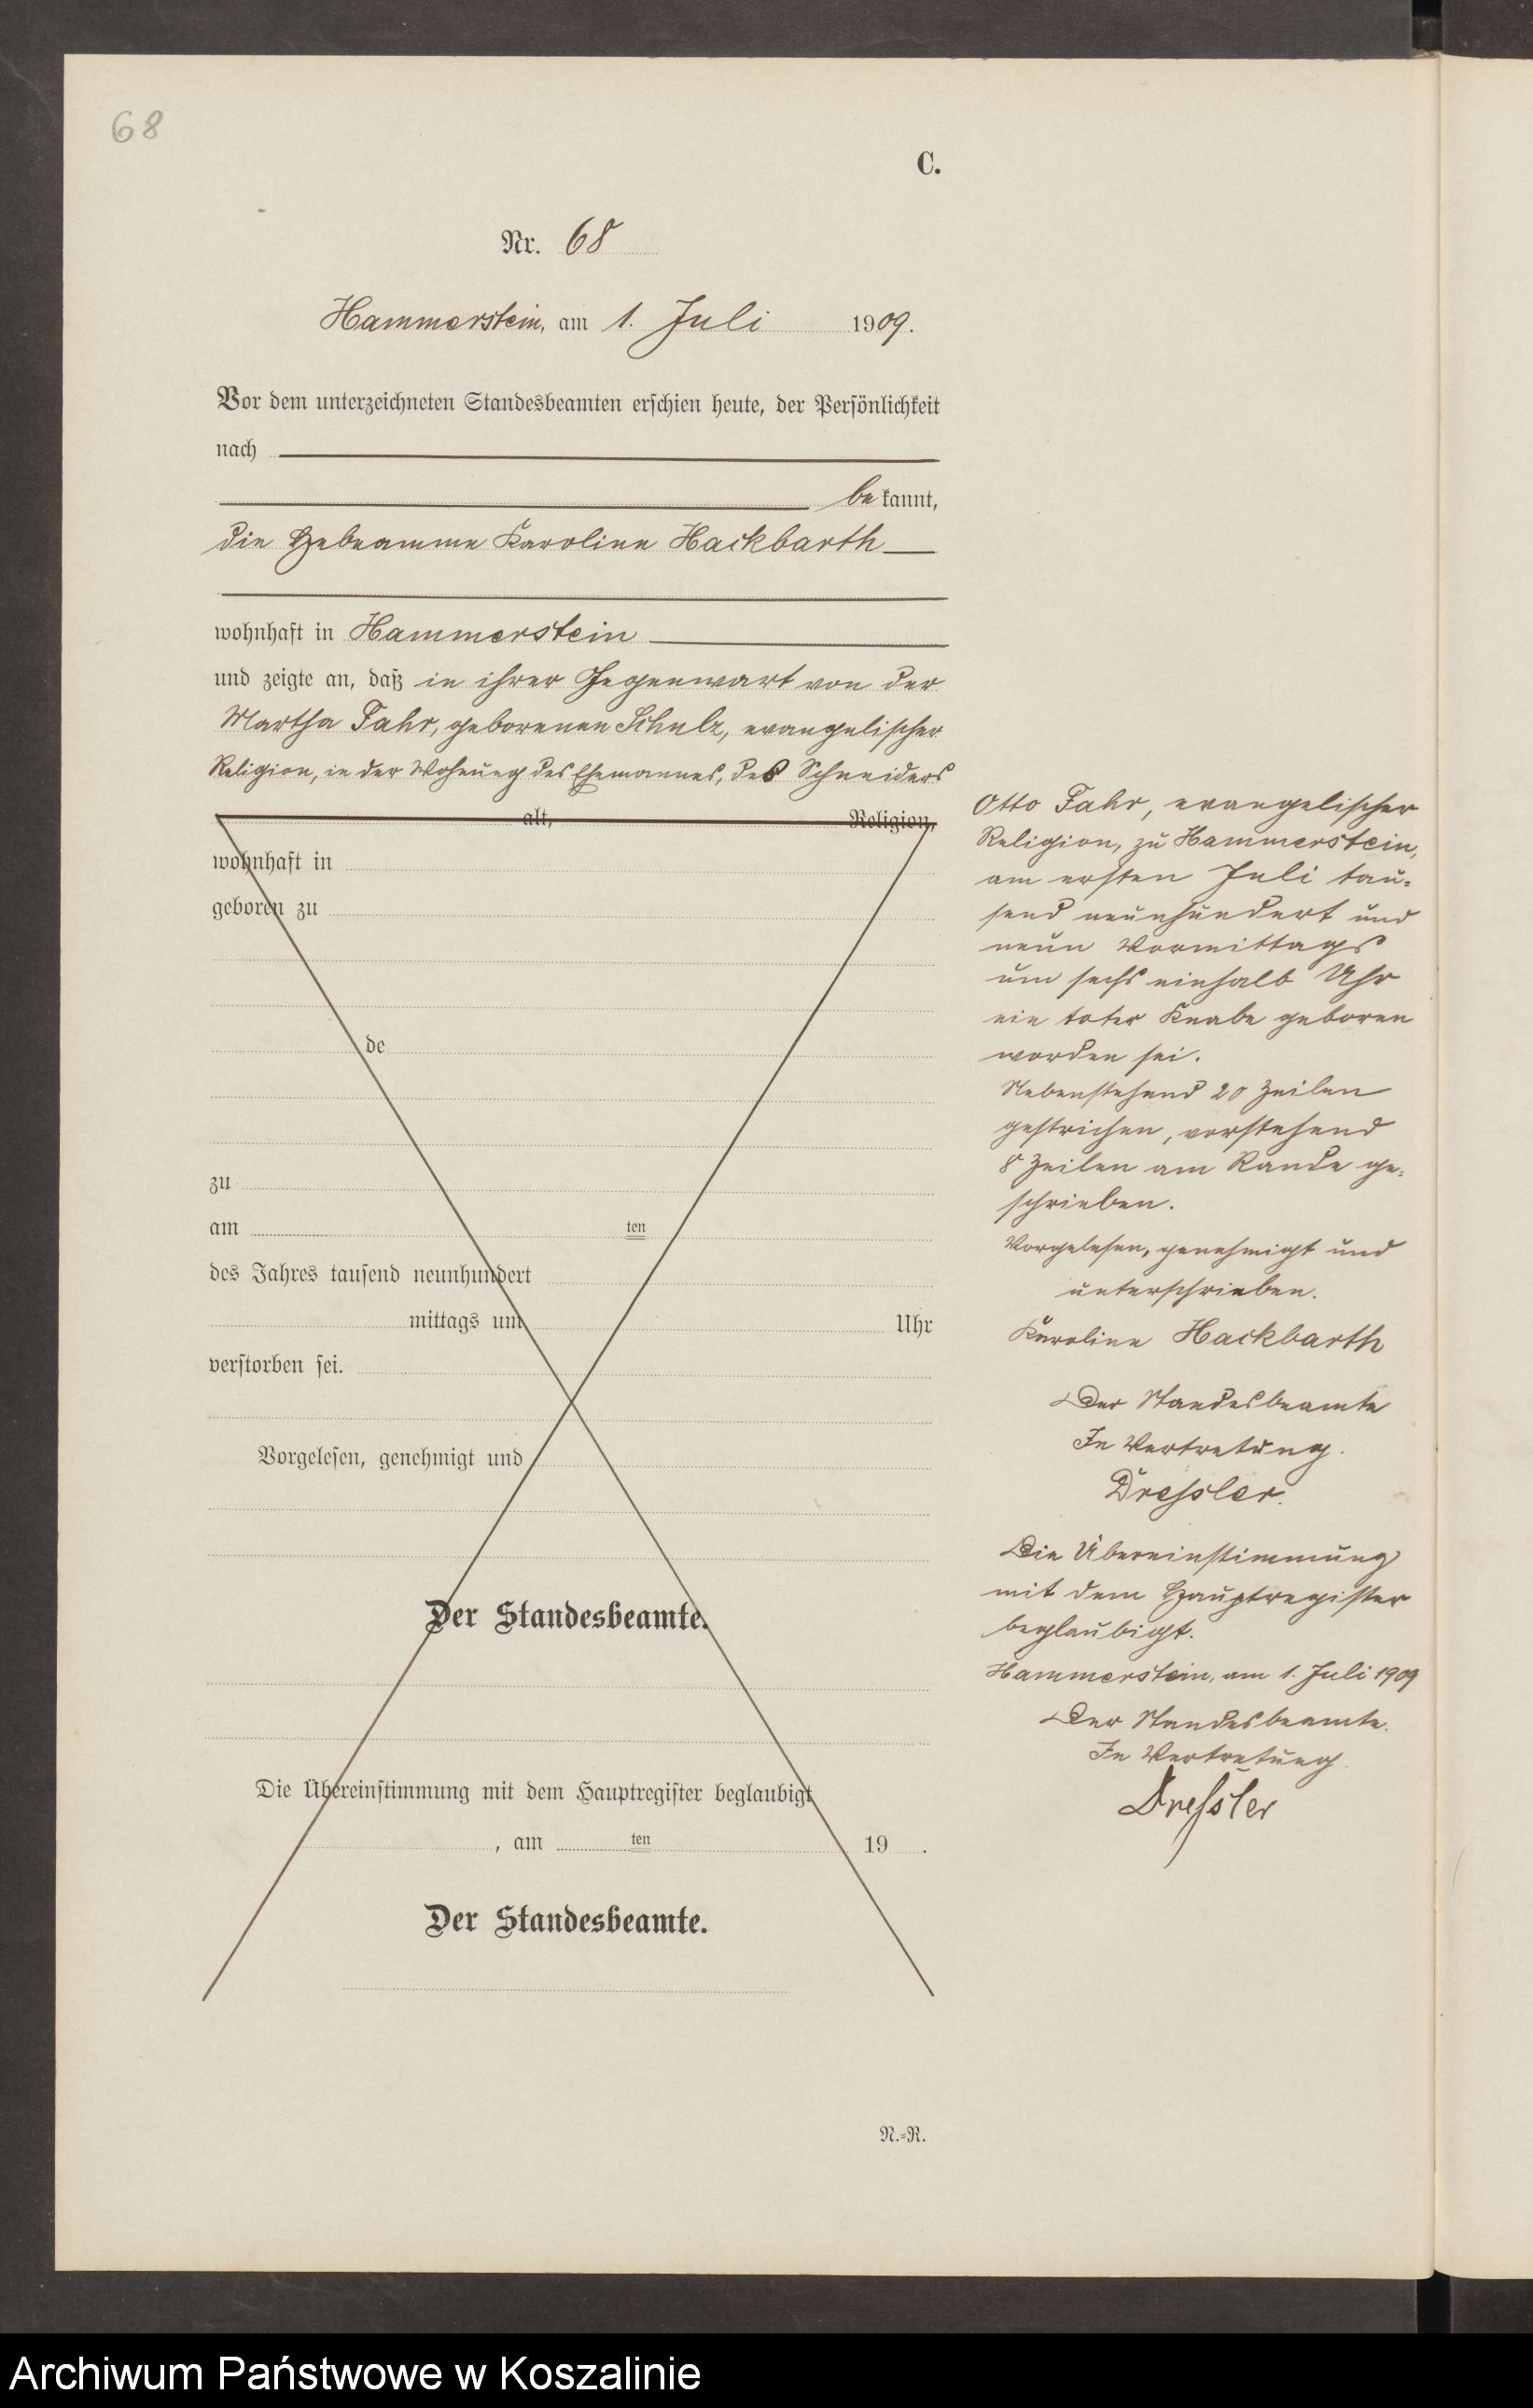 68
C.
Nr. 68
Hammerstein, am 1. Juli 1909.
Vor dem unterzeichneten Standesbeamten erschien heute, der Persönlichkeit
nach
be kannt,
die Hebeamme Karoline Hackbarth
wohnhaft in Hammerstein
und zeigte an, daß in ihrer Gegenwart von der
Martha Fahr, geborenen Schulz, evangelischer
Religion, in der Wohnung des Ehemannes, des Schneiders
alt, Religion,
wohnhaft in
geboren zu
de
zu
am ten
des Jahres tausend neunhundert
mittags um Uhr
verstorben sei.
Vorgelesen, genehmigt und
Der Standesbeamte.
Die Übereinstimmung mit dem Hauptregister beglaubigt
, am ten 19 .
Der Standesbeamte.
N.=R.
Otto Fahr, evangelischer
Religion, zu Hammerstein,
am ersten Juli tau-
send neunhundert und
neun Vormittags
um sechs einhalb Uhr
ein toter Knabe geboren
worden sei.
Nebenstehend 20 Zeilen
gestrichen, vorstehend
8 Zeilen am Rande ge-
schrieben.
Vorgelesen, genehmigt und
unterschrieben.
Karoline Hackbarth
Der Standesbeamte
In Vertretung.
Dressler.
Die Übereinstimmung
mit dem Hauptregister
beglaubigt.
Hammerstein, am 1. Juli 1909
Der Standesbeamte.
In Vertretung.
Dressler
Archiwum Państwowe w Koszalinie